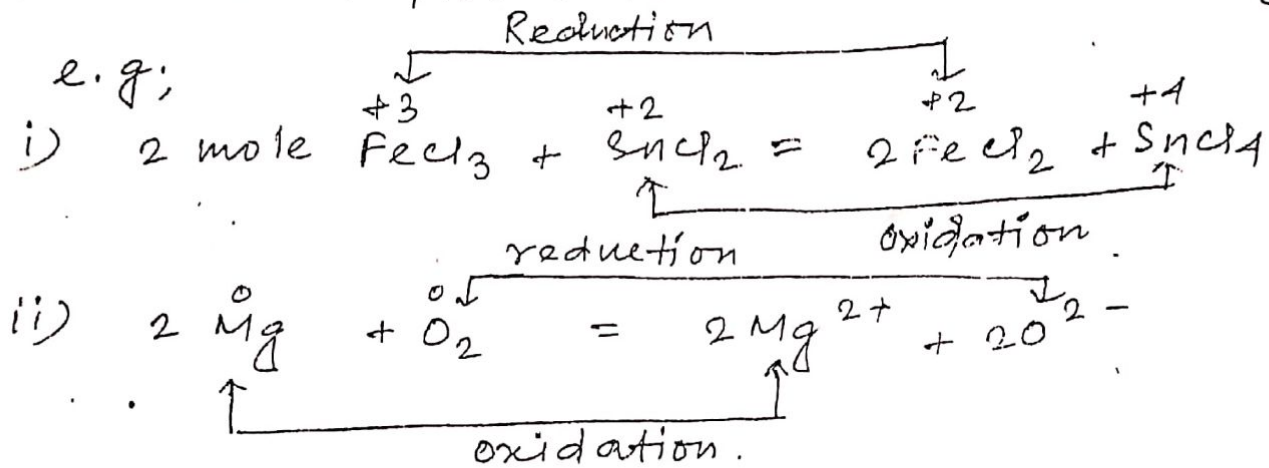 Reduction
e.g;
+3 +2 +2 +4
i) 2 mole FeCl3 + SnCl2 = 2FeCl2 + SnCl4
oxidation
reduction
0 0
ii) 2 Mg + O2 = 2 Mg2+ + 2O2-
oxidation.